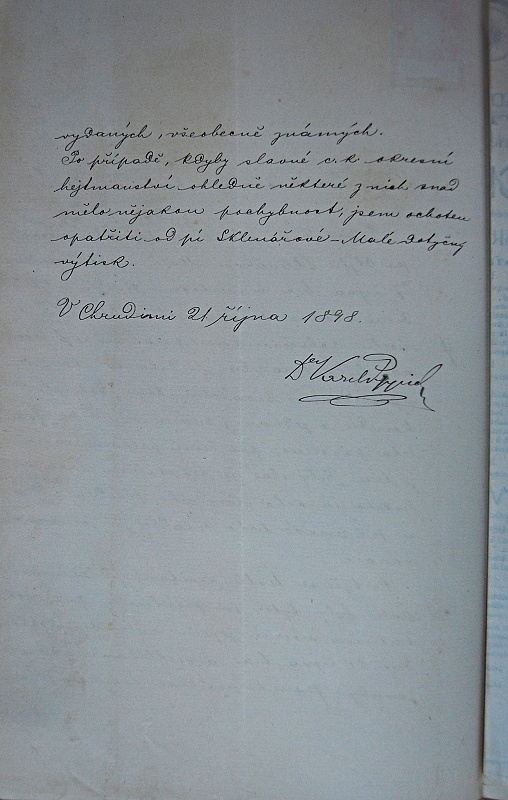 vydaných, všeobecně známých.
Po případě, kdyby slavné c. k. okresní
hejtmanství ohledně některé z nich snad
mělo nějakou pochybnost, jsem ochoten
opatřiti od pí Sklenářové-Malé dotyčný
výtisk.
V Chrudimi 21 října 1898.
Dr Karel Pippich